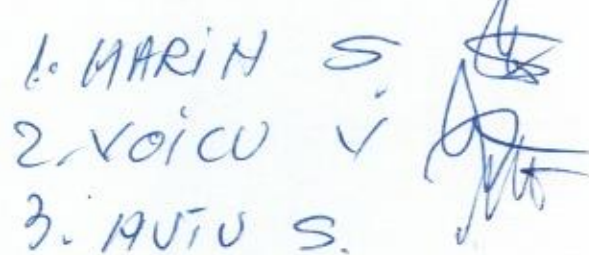 1. MARIN S.
2. VOICU V
3. AUTU S.